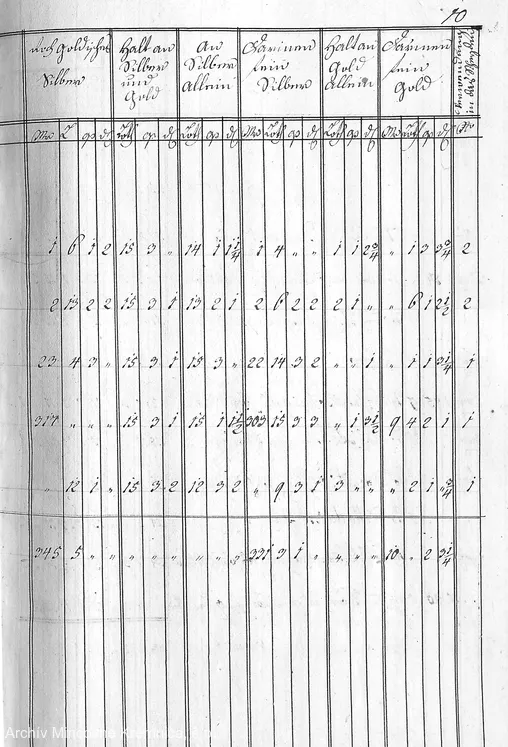 10
Halt an An Darinen Halt an Darinen
Silber Silber fein Gold fein
Silber und Allein Silber Allein Gold
Gold
Mr L q d Loth q d Loth q d Mr Loth q d Loth q d Mr Loth q d No
1 6 1 2 15 3 " 14 1 1 1/4 1 4 " " 1 1 2 3/4 " 1 3 3 3/4 2
2 13 2 2 15 3 1 13 2 1 2 6 2 2 2 1 " " 6 1 2 1/2 2
23 4 3 " 15 3 1 15 3 " 22 14 3 2 " " 1 " 1 1 3 1/4 1
317 " " " 15 3 1 15 1 1 1/2 303 15 3 3 " 1 3 1/2 9 4 2 1 1
" 12 1 " 15 3 2 12 3 2 " 9 3 1 3 " " " 2 1 " 3/4 1
345 5 " " " " " " " " 331 3 1 " " " " 10 " 2 3 1/4